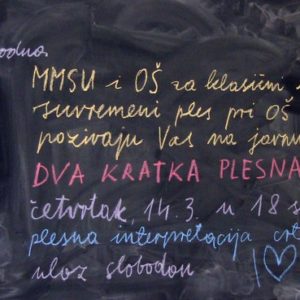 MMSU i OŠ za klasični
suvremeni ples pri OŠ
pozivaju Vas na
DVA KRATKA PLESNA
četvrtak, 14.3. u 18
plesna interpretacija
ulaz slobodan
I ♡